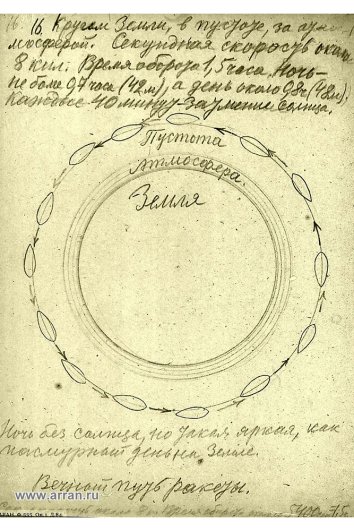 16. 16. Кругом Земли, в пустоте, за ат-
мосферой. Секундная скорость около
8 кил. Время оборота 1,5 часа. Ночь-
не более 0,7 часа (42м), а день около 0,8ч (48м);
Каждые 40 минут затмение Солнца.
Пустота
Атмосфера.
Земля
Ночь без солнца, но такая яркая, как
пасмурный день на Земле.
Вечный путь ракеты.
www.arran.ru